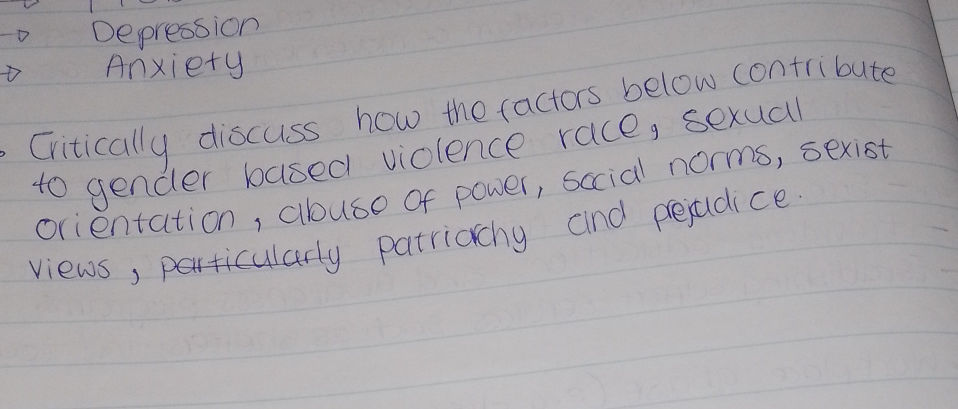 Depression
Anxiety
Critically discuss how the factors below contribute
to gender based violence race, sexual
orientation, abuse of power, social norms, sexist
views, particularly patriarchy and prejudice.